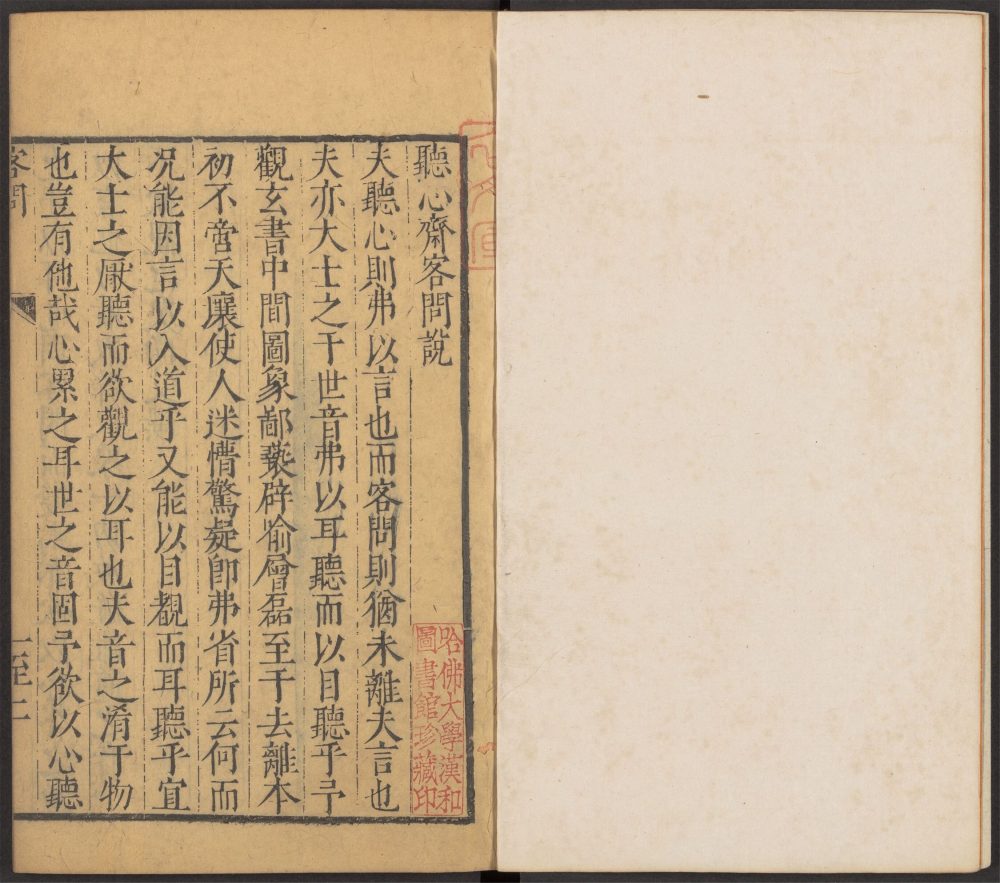 聽心齋客問説
夫聽心則弗以言也而客問則猶未離夫言也
夫亦大士之于世音弗以耳聽而以目聽乎予
觀玄書中間圖象鄙褻辟喻層磊至于去離本
初不啻天壤使人迷懵驚疑卽弗省所云何而
况能因言以入道乎又能以目覩而耳聽乎宜
大士之厭聽而欲觀之以耳也夫音之淆于物
也豈有他哉心累之耳世之音固予欲以心聽
客問
一至二
哈佛大學漢和
圖書館珍藏印